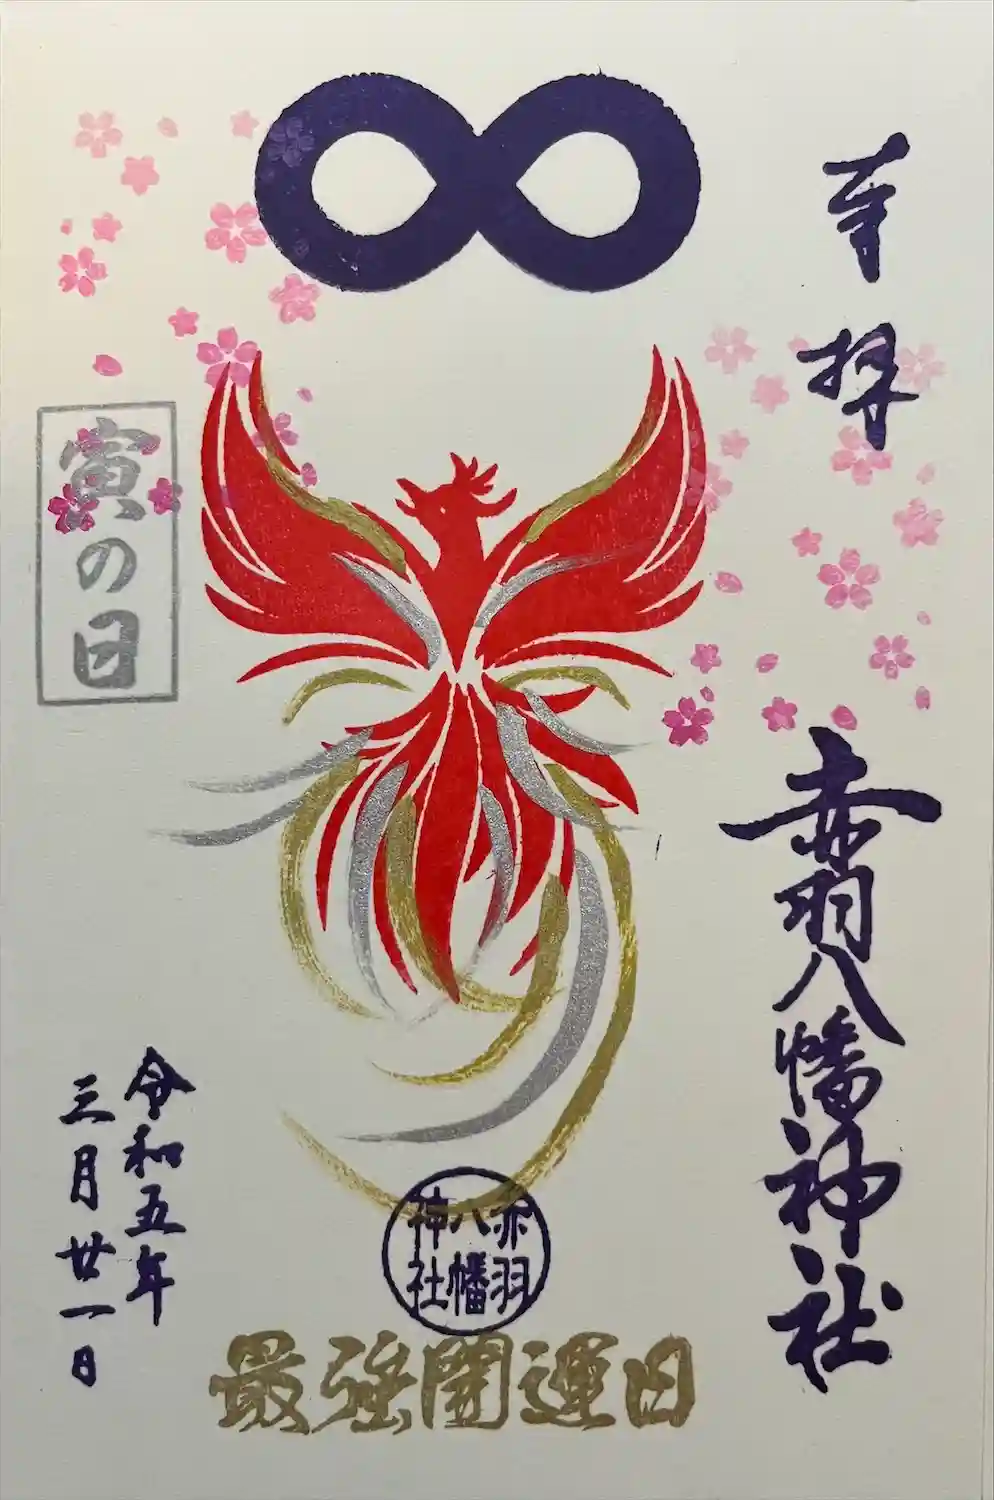 奉拝
赤羽八幡神社
寅の日
令和五年
三月廿一日
赤羽
八幡
神社
最強開運日